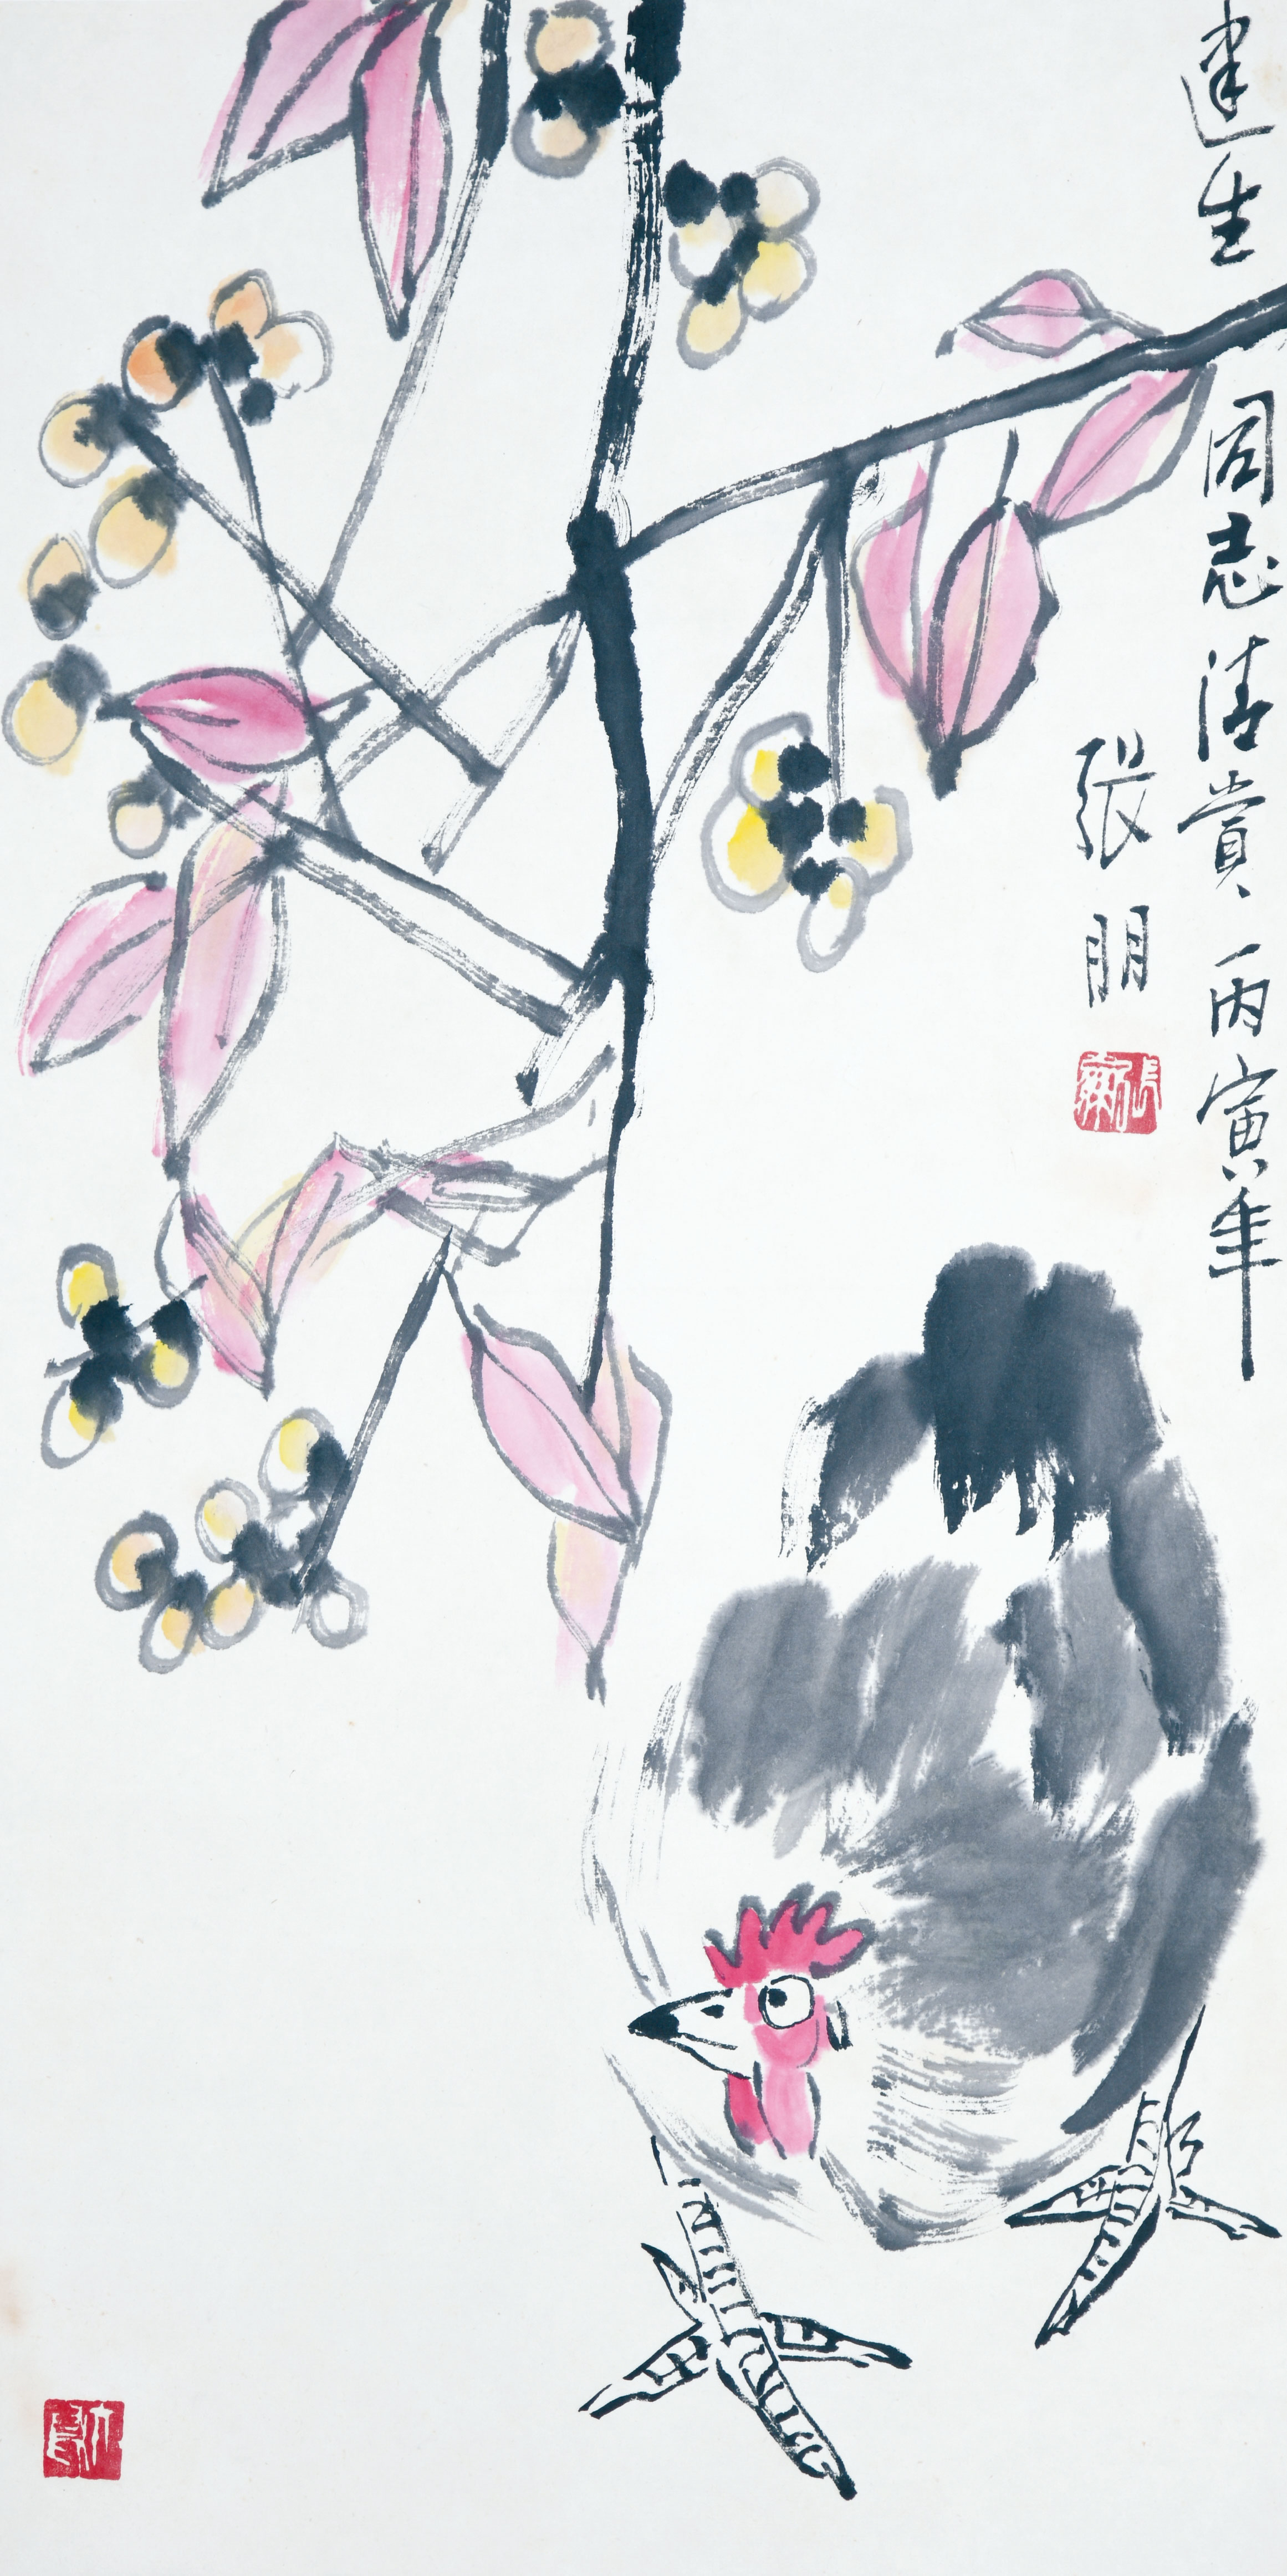 建生同志清赏丙寅年
张朋